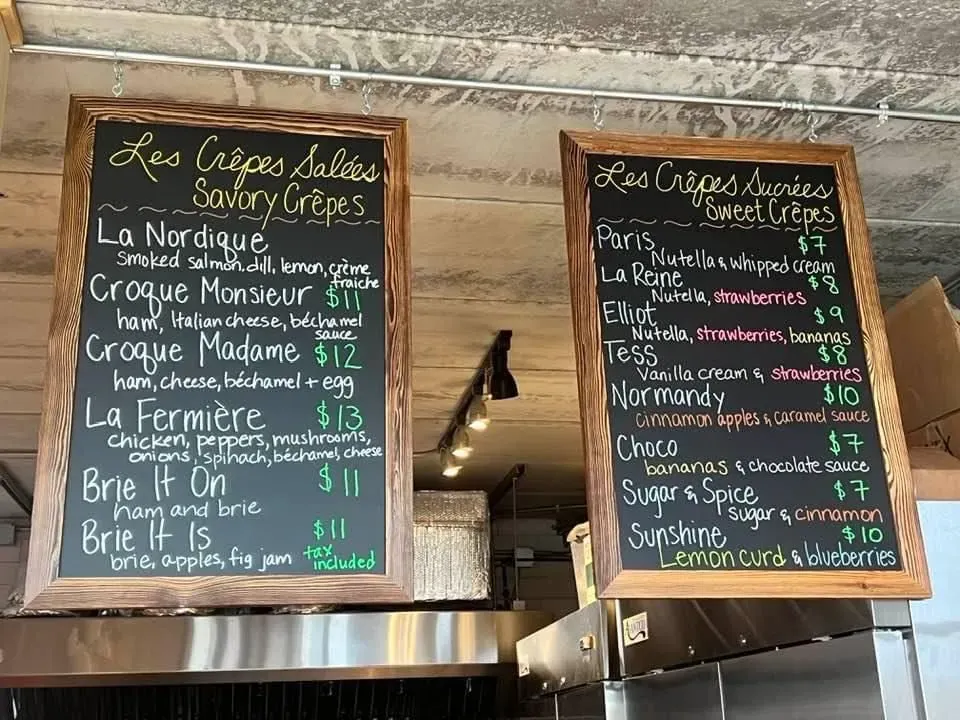 Les Crêpes Salées
Savory Crêpes
La Nordique
smoked salmon, dill, lemon, crème
fraiche
Croque Monsieur $11
ham, Italian cheese, béchamel
sauce
Croque Madame $12
ham, cheese, béchamel + egg
La Fermière $13
chicken, peppers, mushrooms,
onions, spinach, béchamel, cheese
Brie It On $11
ham and brie
Brie It Is $11
brie, apples, fig jam
tax
included
Les Crêpes Sucrées
Sweet Crêpes
Paris $7
Nutella & whipped cream
La Reine $8
Nutella, strawberries
Elliot $9
Nutella, strawberries, bananas
Tess $8
Vanilla cream & strawberries
Normandy $10
cinnamon apples & caramel sauce
Choco $7
bananas & chocolate sauce
Sugar & Spice $7
sugar & cinnamon
Sunshine $10
Lemon curd & blueberries